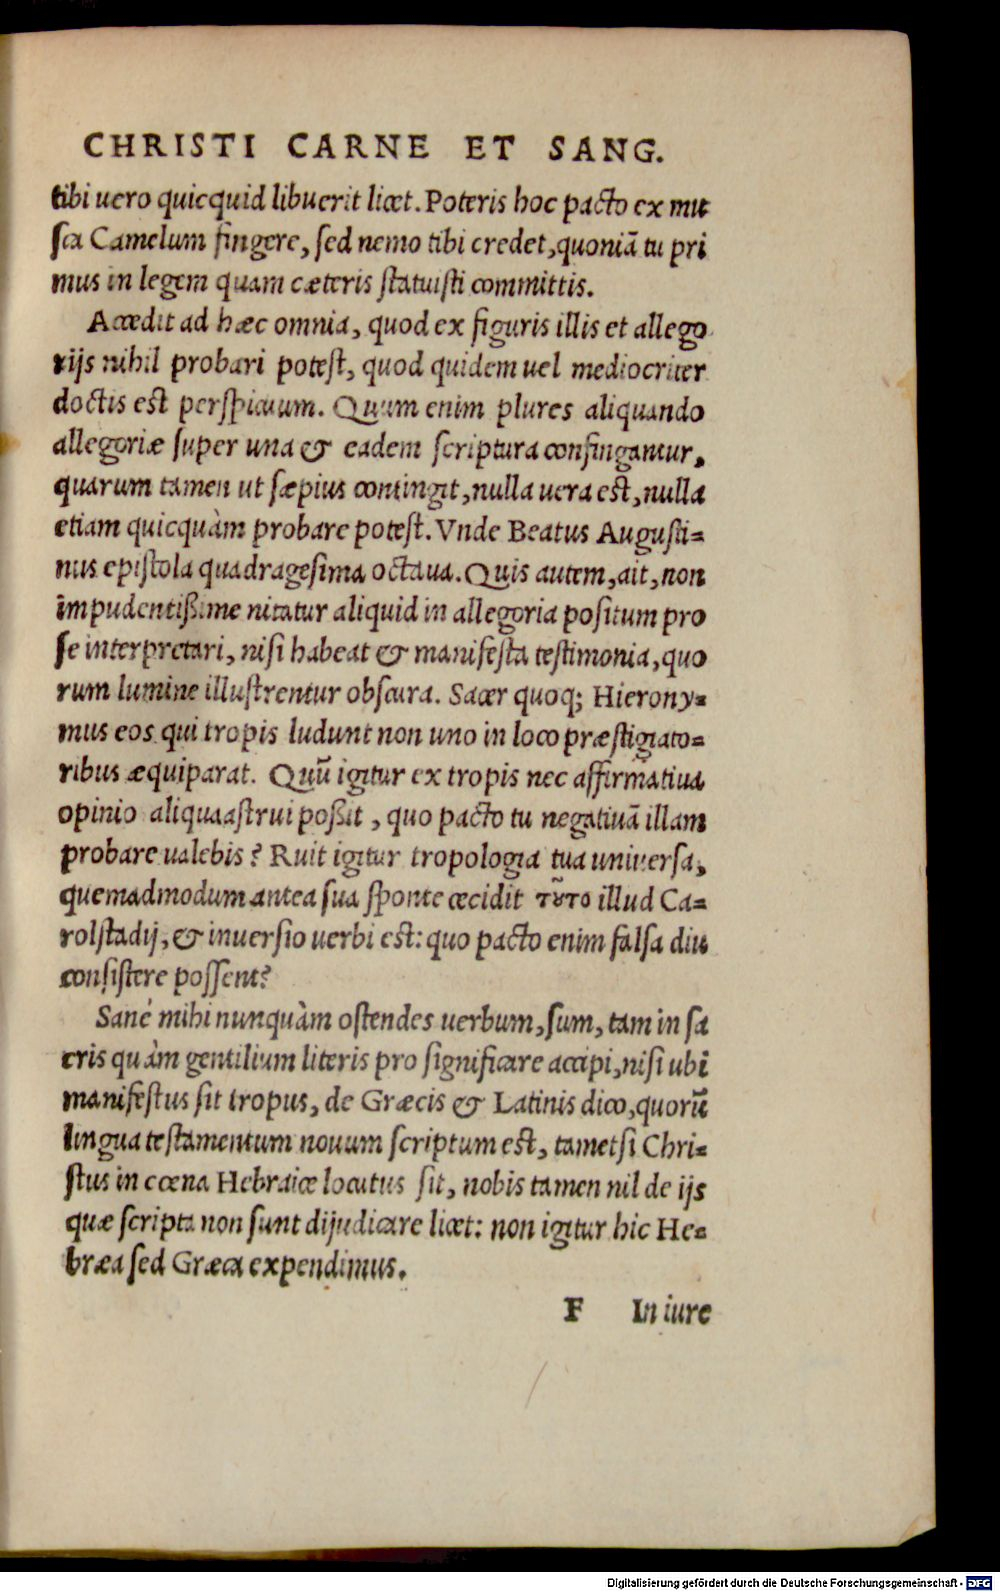 CHRISTI CARNE ET SANG.
tibi uero quicquid libuerit licet. Poteris hoc pacto ex mu
ſca Camelum fingere, ſed nemo tibi credet, quoniā tu pri
mus in legem quam cæteris ſtatuiſti committis.
Accedit ad hæc omnia, quod ex figuris illis et allego
rijs nihil probari poteſt, quod quidem uel mediocriter
doctis eſt perſpicuum. Quum enim plures aliquando
allegoriæ ſuper una & eadem ſcriptura confingantur,
quarum tamen ut ſæpius contingit, nulla uera eſt, nulla
etiam quicquàm probare poteſt. Vnde Beatus Auguſti=
nus epiſtola quadrageſima octaua. Quis autem, ait, non
impudentißime nitatur aliquid in allegoria poſitum pro
ſe interpretari, niſi habeat & manifeſta teſtimonia, quo
rum lumine illuſtrentur obſcura. Sacer quoq; Hierony=
mus eos qui tropis ludunt non uno in loco præſtigiato=
ribus æquiparat. Quū igitur ex tropis nec affirmatiua
opinio aliqua aſtrui poßit, quo pacto tu negatiuā illam
probare ualebis? Ruit igitur tropologia tua uniuerſa,
quemadmodum antea ſua ſponte cecidit τῦτο illud Ca=
rolſtadij, & inuerſio uerbi eſt: quo pacto enim falſa diu
conſiſtere poſſent?
Sané mihi nunquàm oſtendes uerbum, ſum, tam in ſa
cris quàm gentilium literis pro ſignificare accipi, niſi ubi
manifeſtus ſit tropus, de Græcis & Latinis dico, quorū
lingua teſtamentum nouum ſcriptum eſt, tametſi Chri=
ſtus in cœna Hebraice locutus ſit, nobis tamen nil de ijs
quæ ſcripta non ſunt dijudicare licet: non igitur hic He=
bræa ſed Græca expendimus.
F In iure
Digitalisierung gefördert durch die Deutsche Forschungsgemeinschaft - DFG